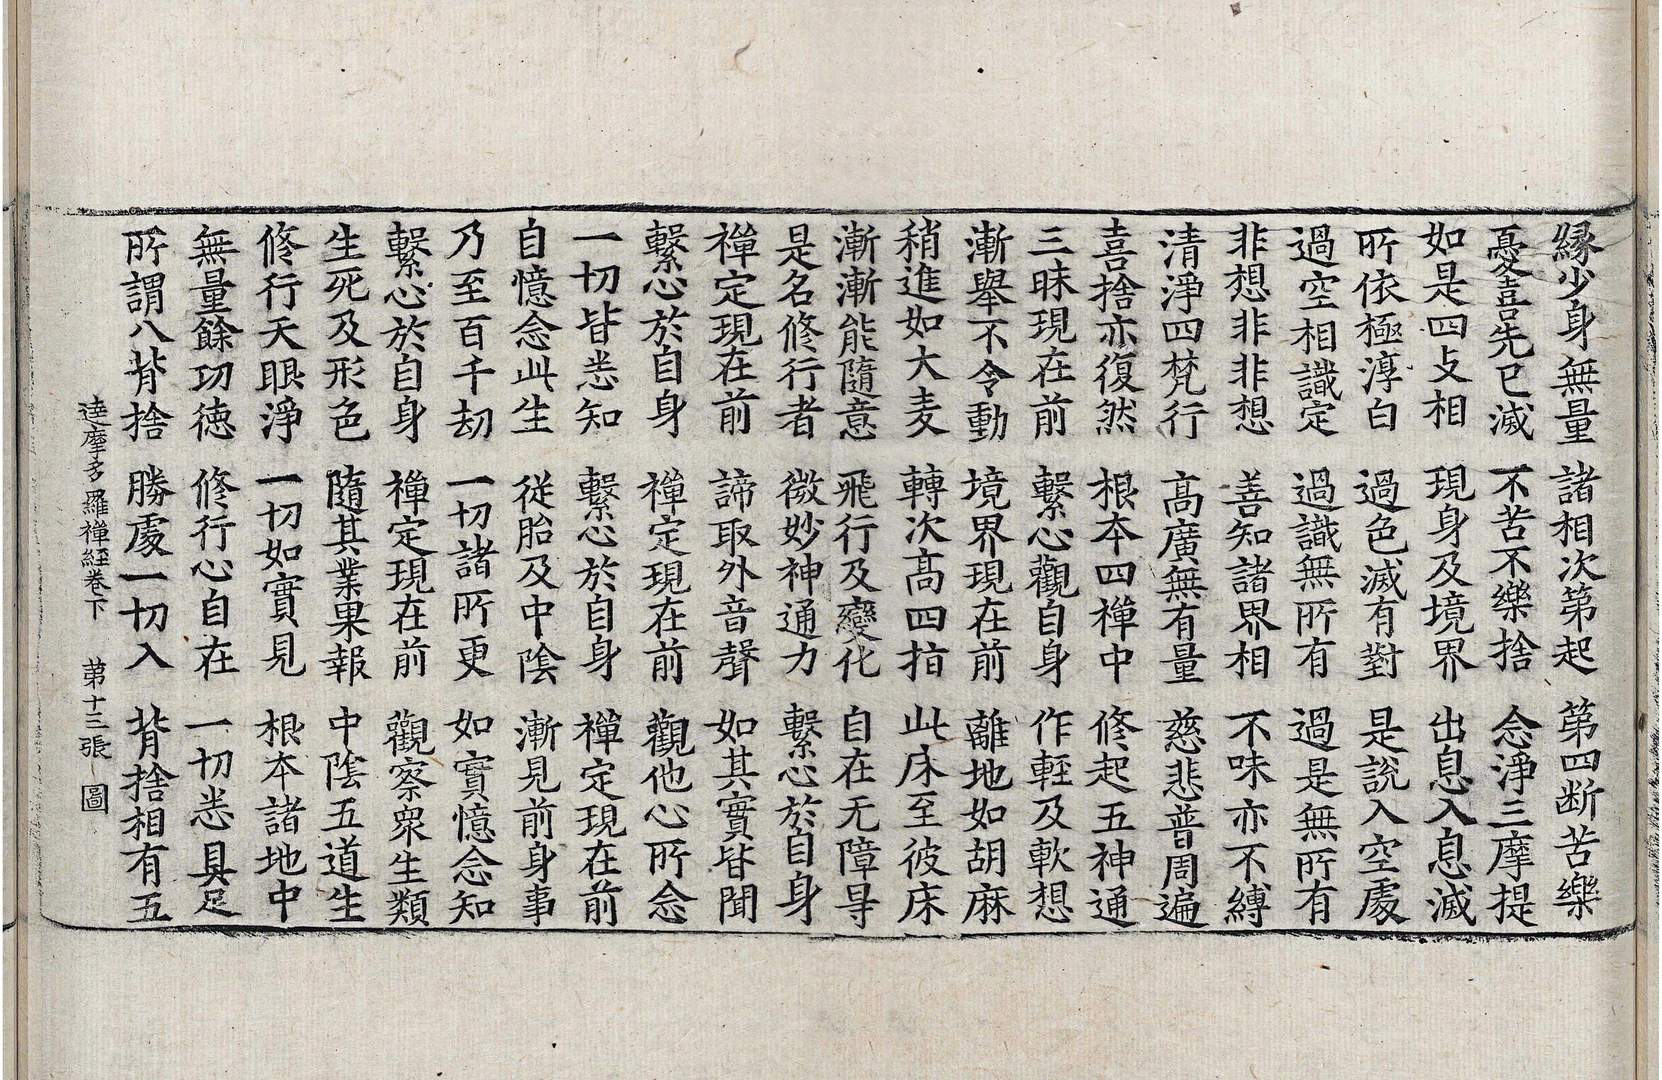 縁少身無量 諸相次第起 第四断苦樂
憂喜先已滅 不苦不樂捨 念淨三摩提
如是四攴相 現身及境界 出息入息滅
所依極淳白 過色滅有對 是說入空處
過空相識定 過識無所有 過是無所有
非想非非想 善知諸界相 不味亦不縛
清淨四梵行 高廣無有量 慈悲普周遍
喜捨亦復然 根本四禪中 修起五神通
三昧現在前 繫心觀自身 作輕及軟想
漸舉不令動 境界現在前 離地如胡麻
稍進如大麦 轉次高四指 此床至彼床
漸漸能隨意 飛行及變化 自在无障㝵
是名修行者 微妙神通力 繫心於自身
禪定現在前 諦取外音聲 如其實皆聞
繫心於自身 禪定現在前 觀他心所念
一切皆悉知 繫心於自身 禪定現在前
自憶念此生 從胎及中陰 漸見前身事
乃至百千劫 一切諸所更 如實憶念知
繫心於自身 禪定現在前 觀察衆生類
生死及形色 隨其業果報 中陰五道生
修行天眼淨 一切如實見 根本諸地中
無量餘功德 修行心自在 一切悉具足
所謂八背捨 勝處一切入 背捨相有五
達摩多羅禪経卷下 苐十三張 圖